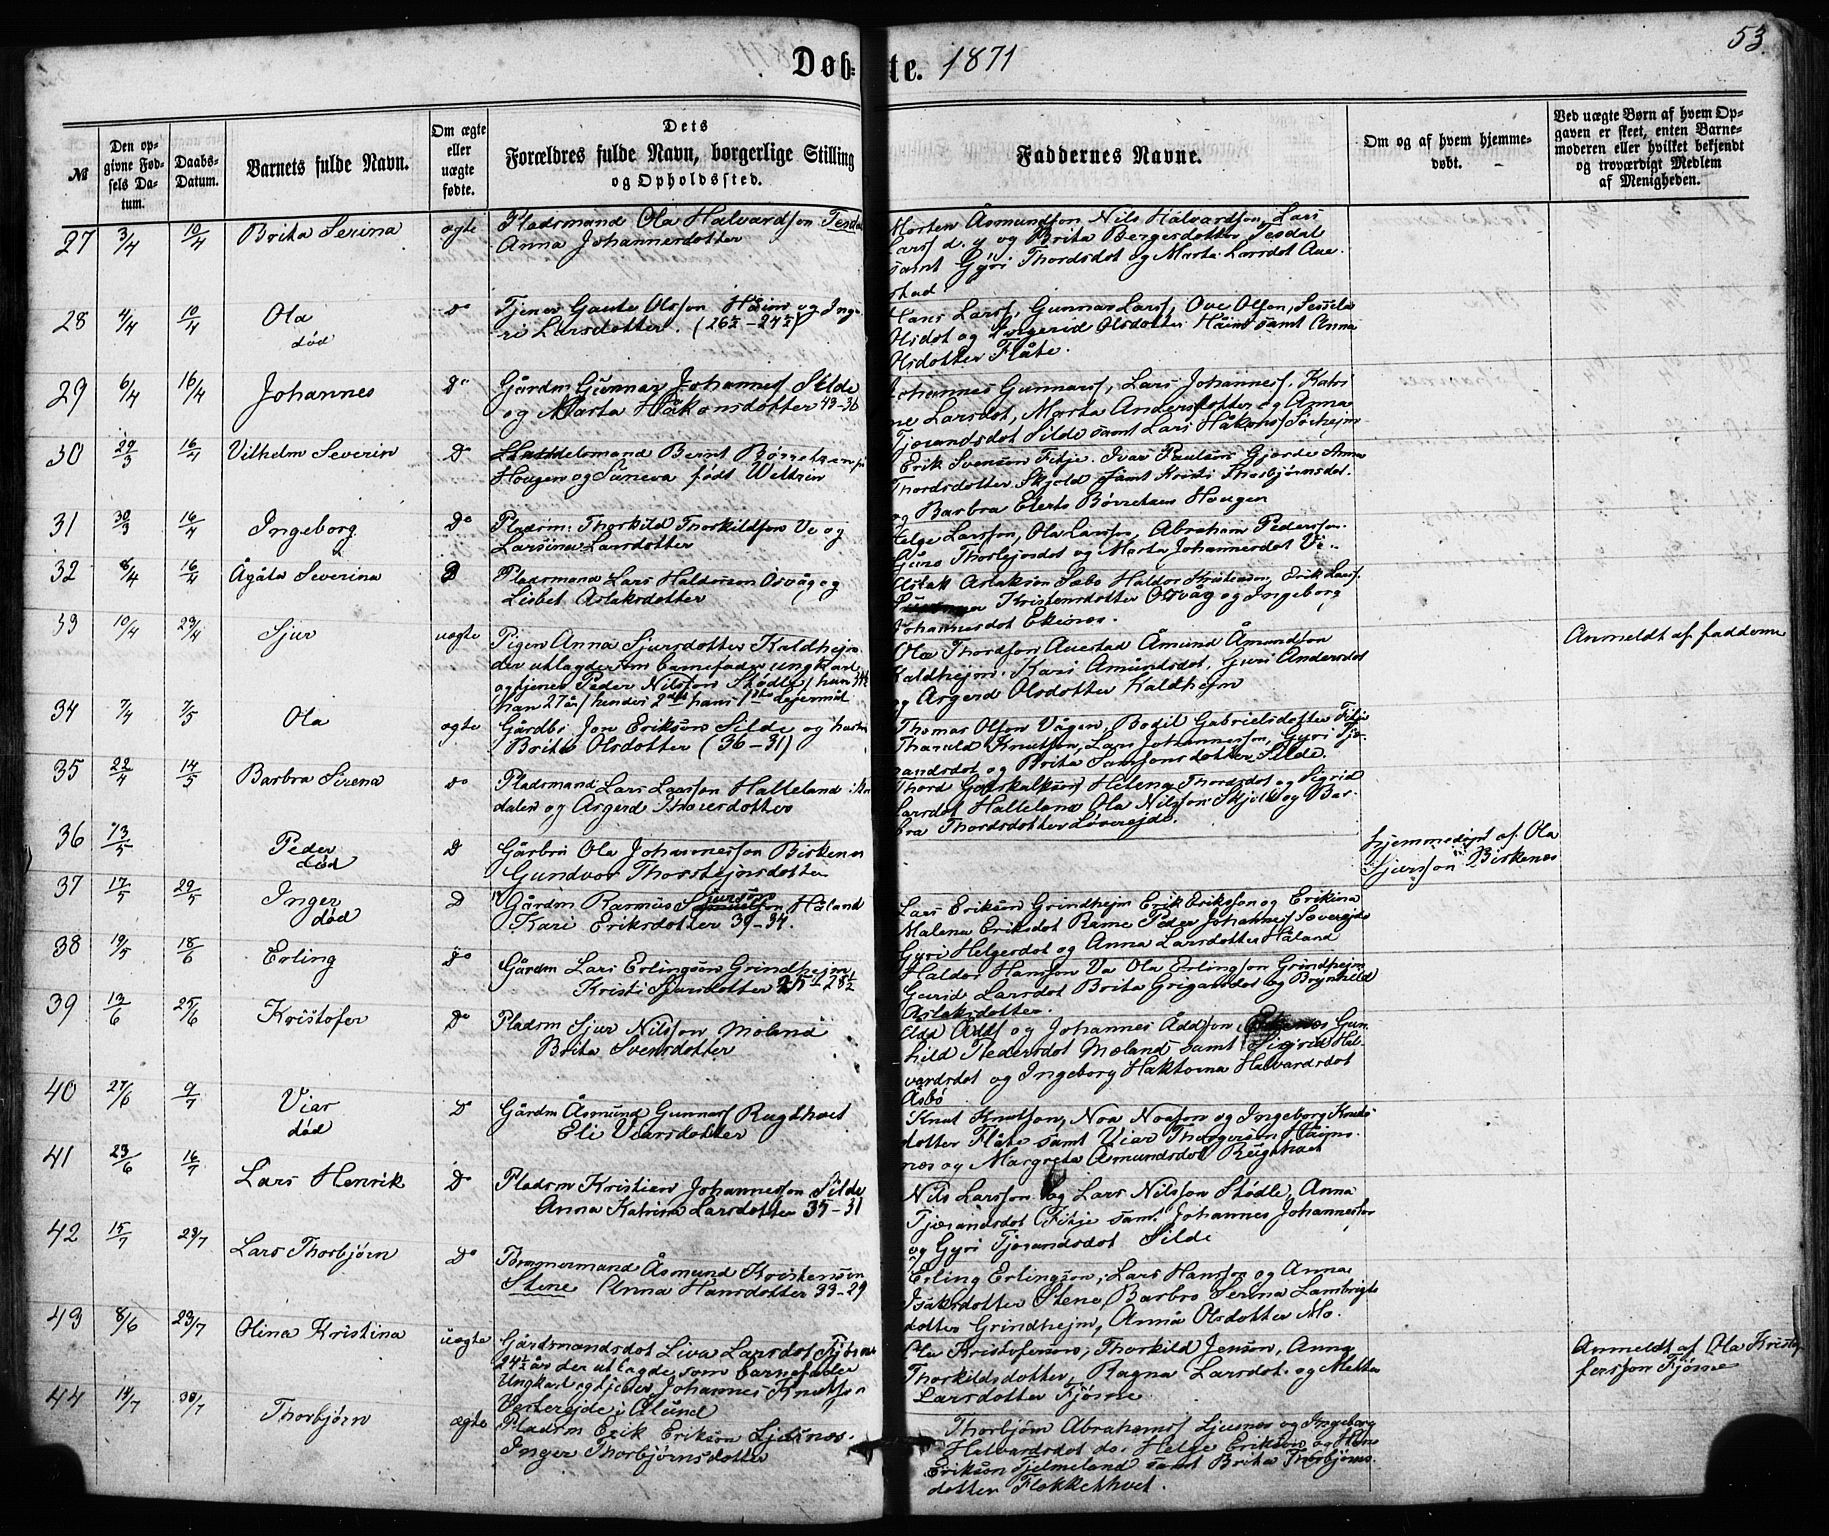 53.
Døbte. 1871
№
Den opgivne Fødsels Datum.
Daabs-Datum.
Barnets fulde Navn.
Om ægte eller uægte fødte.
Dets Forældres fulde Navn, borgerlige Stilling og Opholdssted.
Faddernes Navne.
Om og af hvem hjemmedøbt.
Ved uægte Børn af hvem Opgaven er skeet, enten Barnemoderen eller hvilket bekjendt og troværdigt Medlem af Menigheden.
27 3/4 10/4 Brita Serina ægte Pladsmand Ola Halvardson Tesdal
Anna Johannesdotter
Morten Åsmundson, Nils Halvardson, Lars
Lars d. y og Brita Bergesdotter Tesdal
samt Gyri Thordsdot og Marta Larsdot Aue
stad.
28 4/4 10/4 Ola død Do Tjener Gaute Olsson Håim og Inge
ri Larsdotter. (26½ – 24½)
Hans Larss, Gunnar Larss, Ove Olson, Sessela
Olsdot og Ingerid Olsdotter Håim samt Anna
Olsdotter Flåte.
29 6/4 16/4 Johannes Do Gårdm Gunnar Johanness Silde
og Marta Håkonsdotter 43–36
Johannes Gunnars, Lars Johanness, Katri
ne Larsdot, Marta Andersdotter og Anna
Tjørandsdot Silde samt Lars Håkons Søihejm
30 29/3 16/4 Vilhelm Severin Do Handelsmand Bernt Børretzen på
Hougen og Saneva født Weltzin
Erik Svenson Fitje. Ivar Paulson Gjerde Anna
Thordsdotter Skjold samt Kristi Thorbjørnsdot.
og Barbra Elerts Børretzen Hougen
31 30/3 16/4 Ingeborg Do Pladsm: Thorkild Thorkildson Ve og
Larsina Larsdotter
Helge Larsson, Ola Larsson, Abraham Pedersson.
Guro Thorlejvsdot og Marta Johannesdot Ve.
32 8/4 16/4 Ågåta Severina D Pladsmand Lars Haldorsen Osvåg og
Lisbet Aslaksdotter
Aslak Aslakson Sæbø Haldor Kristenson, Erik Larss.
Kristensdotter Osvåg og Ingeborg
Johannesdot Ekenes.
33 10/4 23/4 Sjur uægte Pigen Anna Sjursdotter Kaldhejm
der utlagde som barnefader ungkarl
og tjener Peder Nilsson Stødle / hun 34½
han 27 år / hendes 2det hans 1ste lejermål
Ola Thordson Auestad Åmund Åmundson
Kaldhejm. Kari Amundsdot, Guri Andersdot
og Asgerd Olsdotter Kaldhejm
Anmeldt af fadderne
34 7/4 7/5 Ola ægte Gårdbr Jon Erikson Silde og hustru
Brita Olsdotter (36–31)
Thomas Olson Vågen, Bodil Gabrielsdotter Fitje
Tharald Knutson, Lars Johannesson, Gyri Tjø-
randsdot og Brita Samsonsdotter Silde.
35 22/4 14/5 Barbra Serena do Pladsmand: Lars Larsson Halleland i
dalen og Asgerd Thoresdotter
Thord Gotskalkson, Helena Thordsdot og Sigrid
Larsdot Halleland Ola Nilsson Skjold og Bar-
bra Thordsdotter Løverejde.
36 13/5 Peder død D Gårbr Ola Johannesson Birkenes
Gundvor Thorstejnsdotter
hjemmedøpt af Ola
Sjursson Birkenes
37 17/5 29/5 Inger død D Gårdm Rasmus Sjurson Håland
Kari Eriksdotter 39–34.
Lars Erikson Grindhejm Erik Eriksson og Erikina
Malena Eriksdot Rame Peder Johanness Søverejde
Guri Helgesdot og Anna Larsdotter Håland
38 19/5 18/6 Erling Do Gårdm Lars Erlingson Grindhejm
Kristi Sjursdotter 25½–28½
Haldor Hanson Va Ola Erlingson Grindhejm
Gurid Larsdot Brita Grigarsdot og Brynhild
Aslaksdotter.
39 13/6 25/6 Kristofer Do Pladsm Sjur Nilsson Moland
Brita Svensdotter
Edd Ådds og Johannes Åddson, Ekenes Gun
hild Pedersdot Moland samt Sigrid Hal-
vardsdot og Ingeborg Haktorna Halvardsdot
Åsbø
40 27/6 9/7 Viar død D Gårdm Åsmund Gunnars Rugthvet
Eli Viarsdotter
Knut Knutson, Noa Noason og Ingeborg Knuds
dotter Flåte samt Viar Thorgerson Håjme-
nes og Margreta Åsmundsdot Rugthvet
41 23/6 16/7 Lars Henrik D Pladsm Kristian Johannesson Silde
Anna Katrina Larsdotter 35–31
Nils Larsson og Lars Nilsson Stødle, Anna
Tjørandsdot Fitje samt Johannes Johannesson
og Gyri Tjørandsdot Silde
42 15/7 23/7 Lars Thorbjørn Do Tømmermand Åsmund Kristenson
Stene Anna Hansdotter 33–29
Erling Erlingson, Lars Hansson og Anna
Isaksdotter Stene, Barbro Serina Lambrigts
dotter Grindhejm, Anna Olsdotter Mo.
43 8/6 23/7 Olina Kristina uægte Gårdmandsdot Liva Larsdot Fjøsne
24½ år der utlagde som barnefader
Ungkarl og tjener Johannes Knutson
Vesterejde i Ølund
Ola Kristoferson, Thorkild Jenson, Anna
Thorkildsdotter, Ragna Larsdot og Metta
Larsdotter Fjøsne
Anmeldt af Ola Kristo
fersson Fjøsne
44 14/7 30/7 Thorbjørn ægte Pladsm Erik Erikson Ljusnes
Inger Thorbjørnsdotter
Thorbjørn Abrahams Ljusnes og Ingeborg
Halvardsdot do. Helge Erikson og Hans
Erikson Tjelmeland samt Brita Thorbjørns
dotter Flokkethvet.